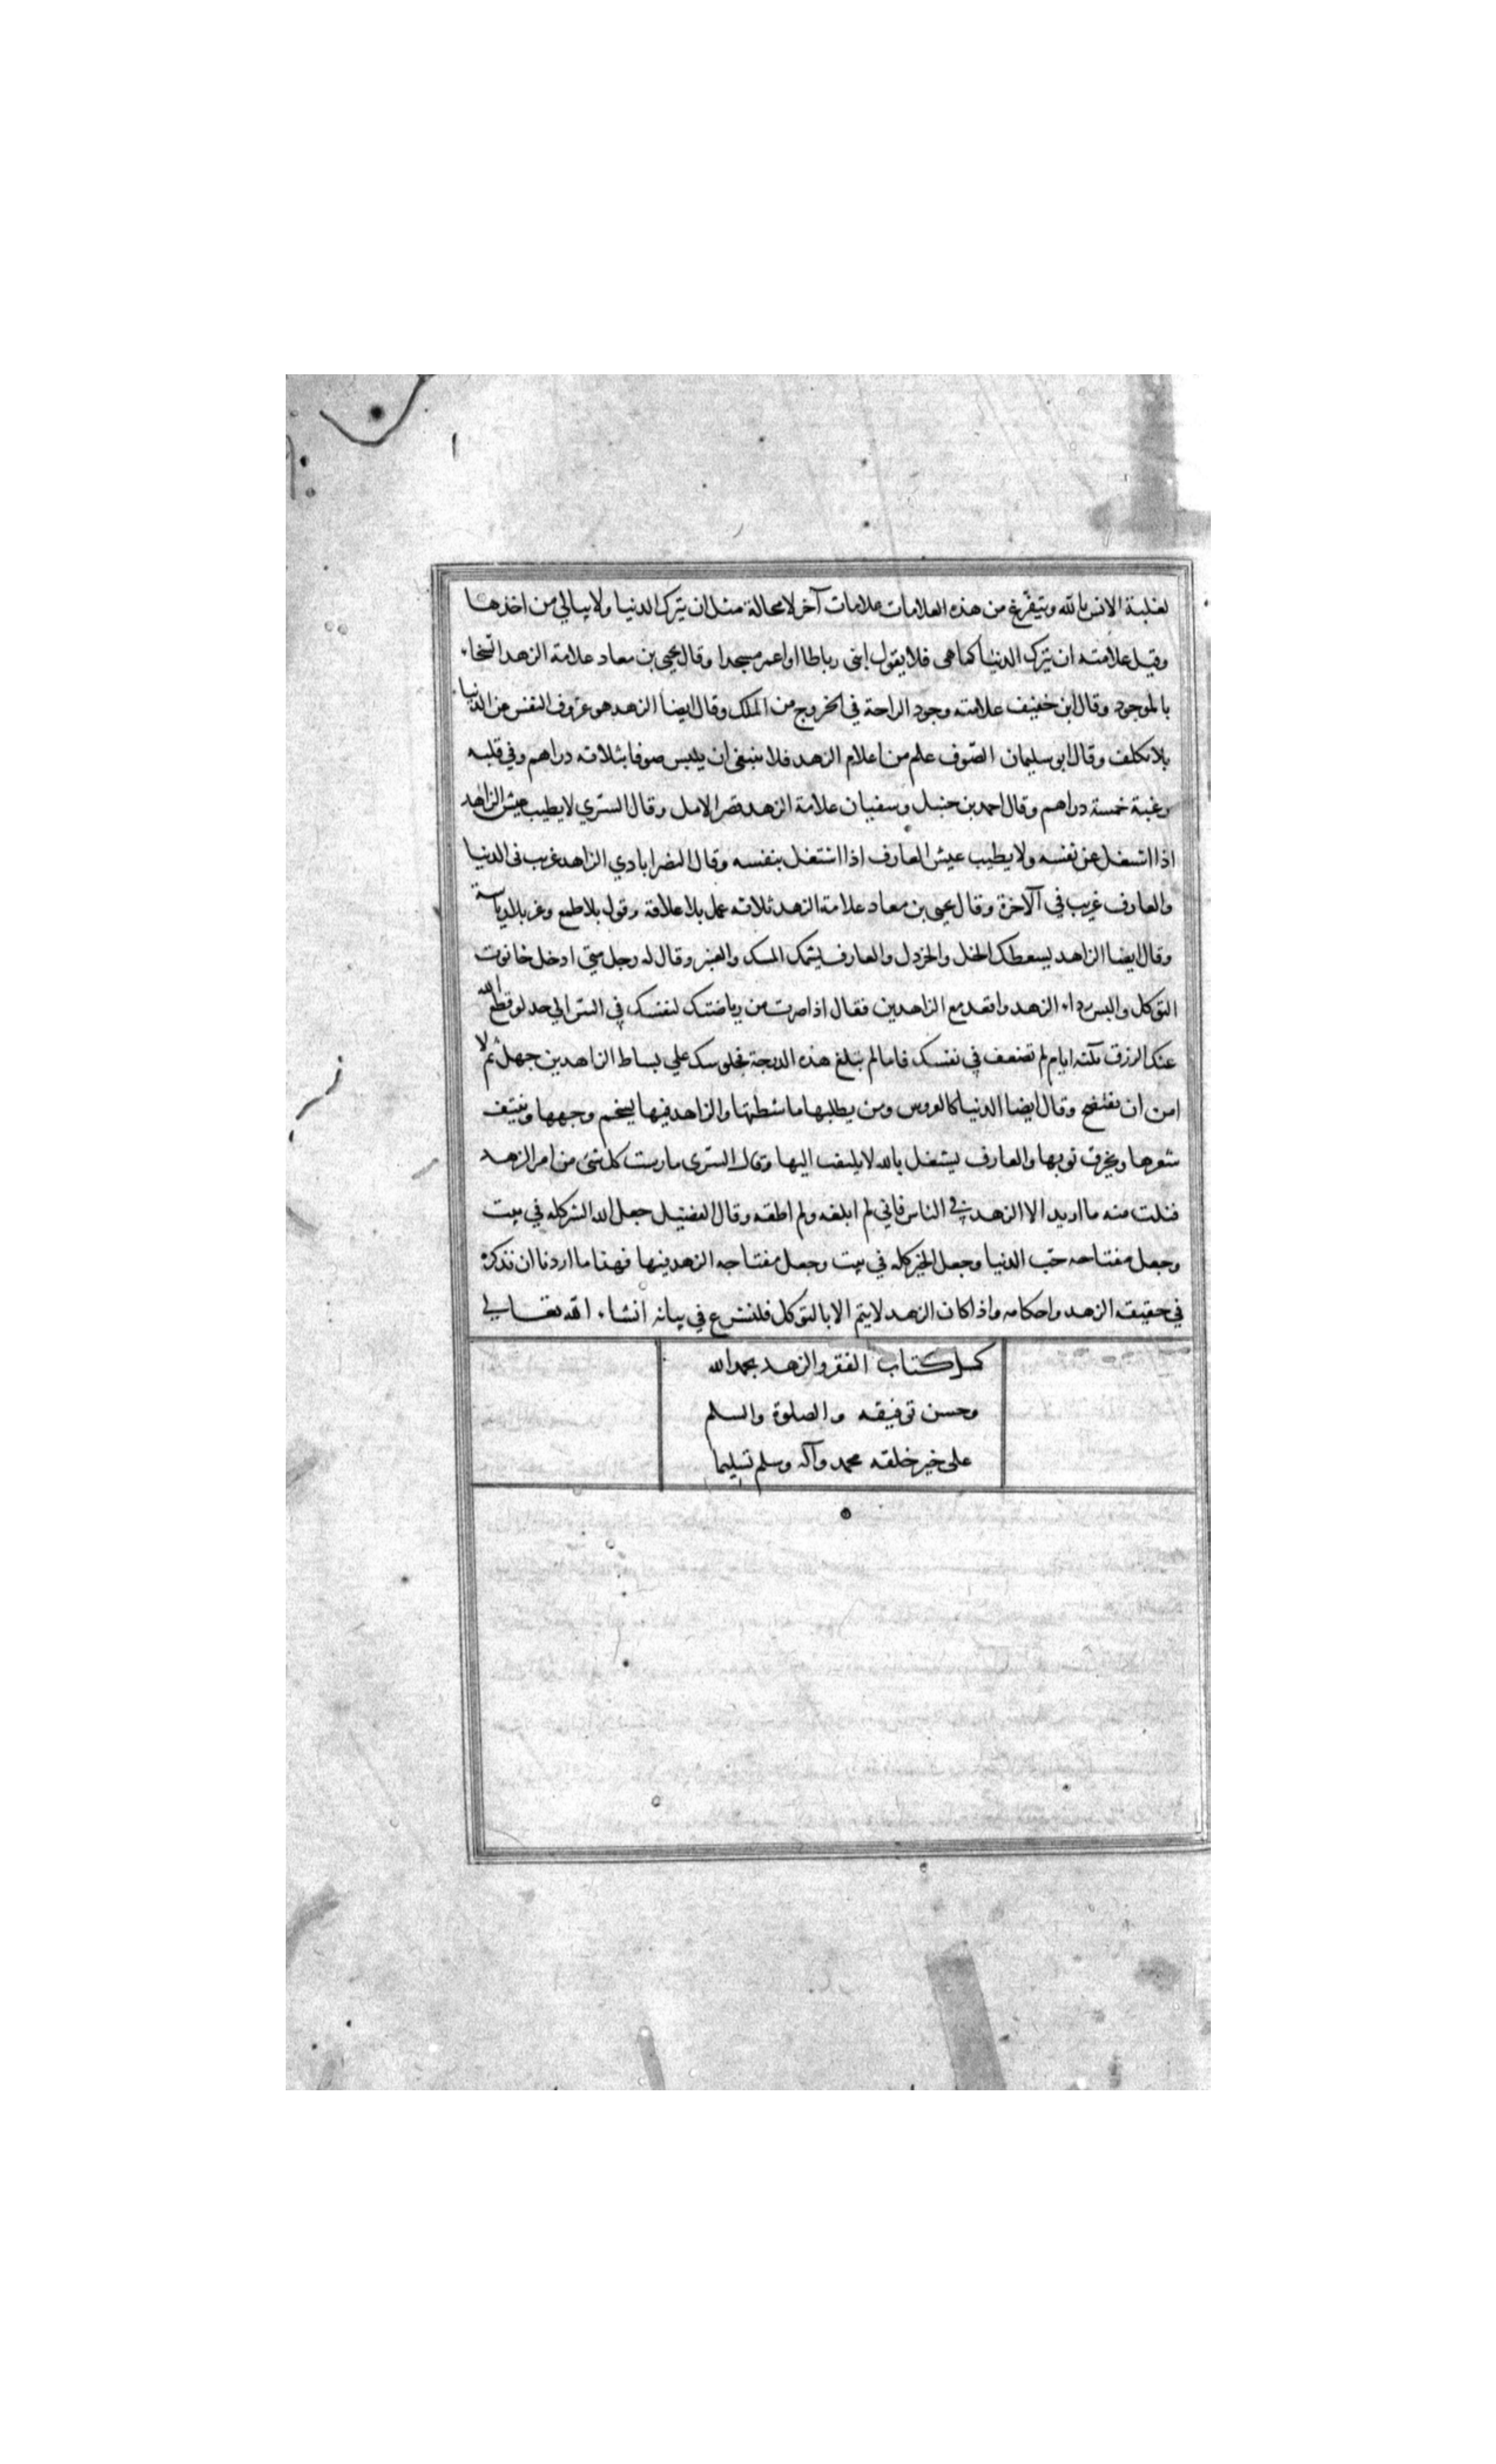 لغلبة الانس بالله ويتفرغ من هذه العلامات علامات آخر لا محالة مثل ان يترك الدنيا ولا يبالي من اخذها
وقيل علامته ان يترك الدنيا كما هي فلا يقول ابنى رباطا او اعمر مسجدا وقال يحيى بن معاد علامة الزهد السخاء
بالموجود وقال ابن خفيف علامته وجود الراحة في الخروج من الملك وقال ايضا الزهد هو عزوف النفس عن الدنيا
بلا تكلف وقال ابو سليمان الصّوف علم من اعلام الزهد فلا ينبغى ان يلبس صوفا بثلاثه دراهم وفي قلبه
رغبة خمسة دراهم وقال احمد بن حنبل وسفيان علامة الزهد قصر الامل وقال السّري لا يطيب عيش الزاهد
اذا اشتغل عن نفسه ولا يطيب عيش العارف اذا اشتغل بنفسه وقال النصراباذي الزاهد غريب فى الدنيا
والعارف غريب في الآخرة وقال يحيى بن معاد علامة الزهد ثلاثه عمل بلا علاقة وقول بلا طمع وعز بلا رياسة
وقال ايضا الزاهد يسعطك الخل والخردل والعارف يشمك المسك والعنبر وقال له رجل متى ادخل حانوت
التوكل والبس رداء الزهد واقعد مع الزاهدين فقال اذا صرت من رياضتك لنفسك في السّر الي حد لو قطع الله
عنك الرزق ثلثه ايام لم تضعف في نفسك فاما لم تبلغ هذه الدرجة فجلوسك علي بساط الزاهدين جهل ثم لا
امن ان تفتضح وقال ايضا الدنيا كالعروس ومن يطلبها ماشطتها والزاهد فيها يسخم وجهها وينتف
شعرها ويخرق ثوبها والعارف يشتغل بالله لا يلتفت اليها وقال السّرى مارست كل شئ من امر الزهد
فنلت منه ما اريد الا الزهد في الناس فاني لم ابلغه ولم اطقه وقال الفضيل جعل الله الشر كله في بيت
وجعل مفتاحه حبّ الدنيا وجعل الخير كله في بيت وجعل مفتاحه الزهد فيها فهذا ما اردنا ان نذكره
في حقيقه الزهد واحكامه واذا كان الزهد لا يتم الا بالتوكل فلنشرع في بيانه انشاء الله تعالي
كمل كتاب الفقر والزهد بحمد الله
وحسن توفيقه والصلوة والسلم
على خير خلقه محمد وآله وسلم تسليما